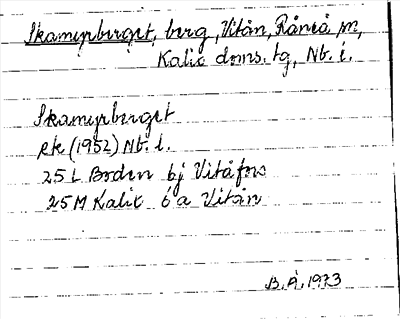 Skamynberget, berg, Vitån, Råneå sn,
Kalix doms. tg, Nb. l.
Skamynberget
rtk (1952) Nb. l.
25 L Boden 6j Vitåfors
25 M Kalix 6a Vitån
B.Å. 1973